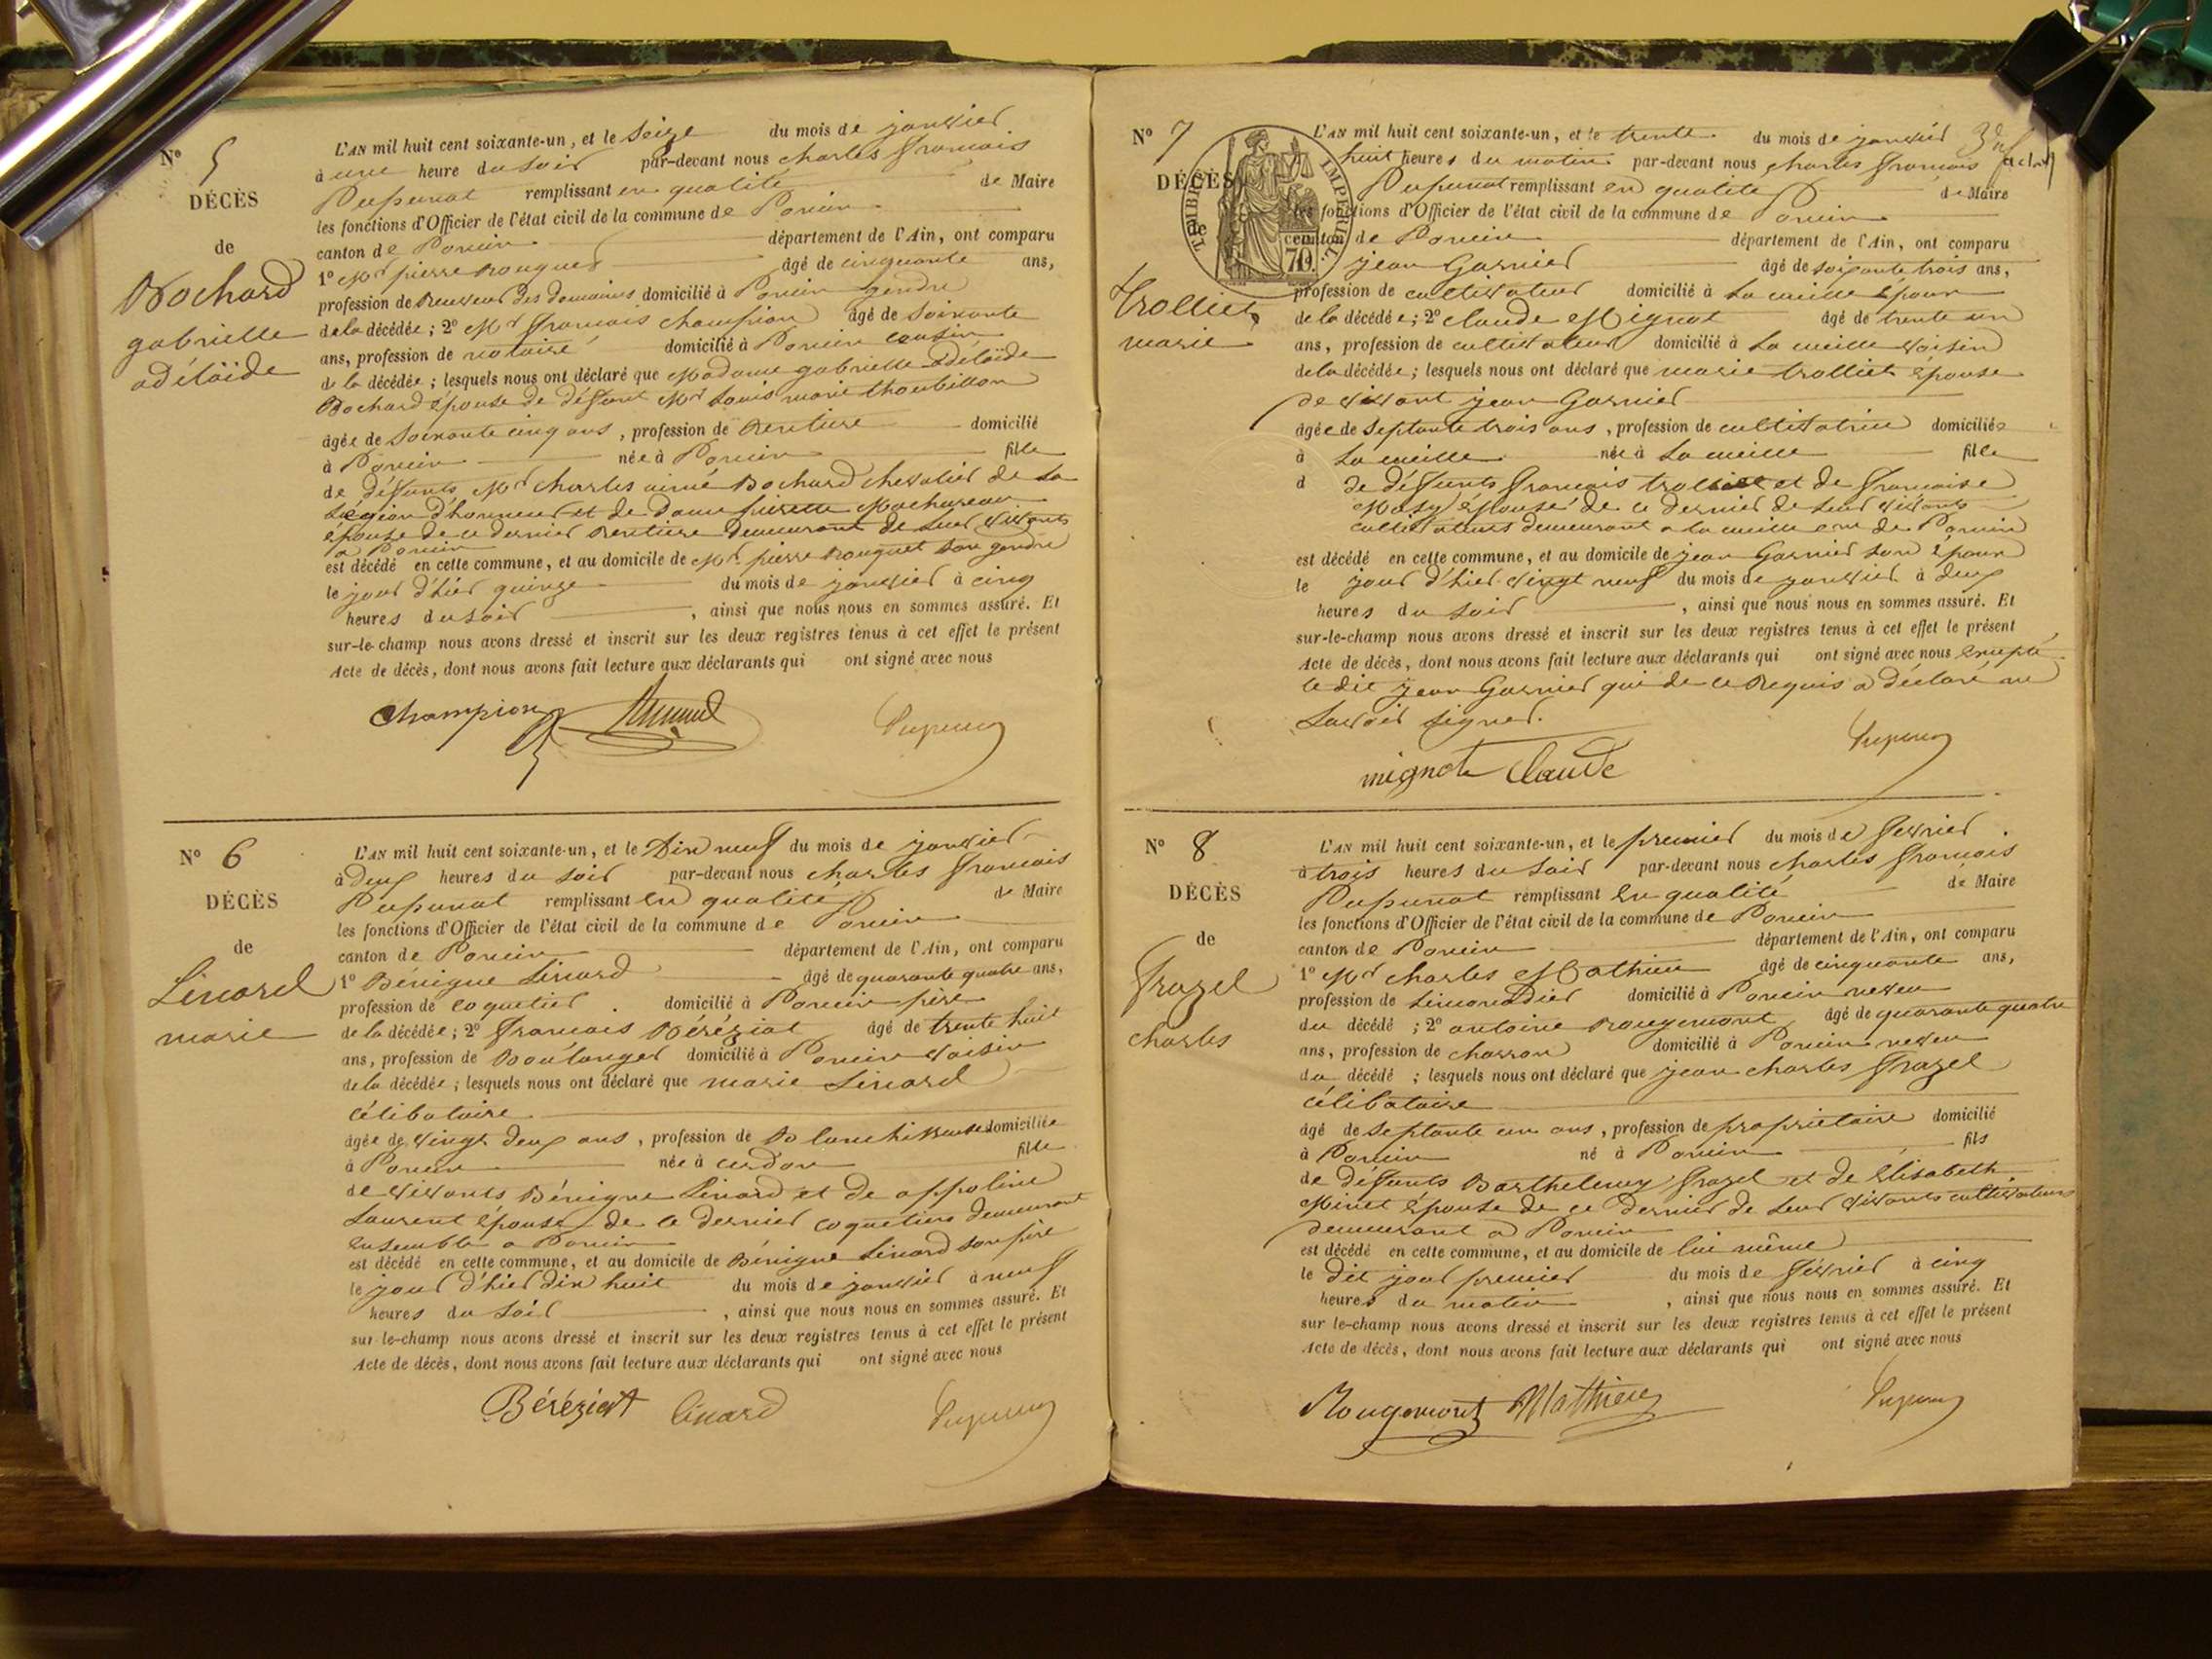 N° 5
DÉCÈS
de
Bochard
gabrielle
adélaïde
L'AN mil huit cent soixante-un, et le Seize du mois de janvier
à une heure du soir par-devant nous charles françois
Pupunat remplissant en qualité de Maire
les fonctions d'Officier de l'état civil de la commune de Poncin
canton de Poncin département de l'Ain, ont comparu
1° Mr pierre Rouguet âgé de cinquante ans,
profession de Receveur des domaines domicilié à Poncin gendre
de la décédée; 2° Mr françois champion âgé de soixante
ans, profession de notaire domicilié à Poncin cousin
de la décédée; lesquels nous ont déclaré que Madame gabrielle adélaïde
Bochard épouse de défunt Mr Louis marie thoubillon
âgée de soixante cinq ans, profession de Rentière domicilié
à Poncin née à Poncin fille
de défunts Mr charles aimé Bochard chevalier de la
Légion d'honneur et de dame pierrette
épouse de ce dernier Rentiers demeurant de leur vivants
a Poncin
est décédé en cette commune, et au domicile de Mr pierre Rouguet son gendre
le jour d'hier quinze du mois de janvier à cinq
heures du soir, ainsi que nous nous en sommes assuré. Et
sur-le-champ nous avons dressé et inscrit sur les deux registres tenus à cet effet le présent
Acte de décès, dont nous avons fait lecture aux déclarants qui ont signé avec nous
Champion Pupunat
N° 6
DÉCÈS
de
Linard
marie
L'AN mil huit cent soixante-un, et le Dix neuf du mois de janvier
à deux heures du soir par-devant nous charles françois
Pupunat remplissant en qualité de Maire
les fonctions d'Officier de l'état civil de la commune de Poncin
canton de Poncin département de l'Ain, ont comparu
1° Bénigne Linard âgé de quarante quatre ans,
profession de coquetier domicilié à Poncin père
de la décédée; 2° françois Béréziat âgé de trente huit
ans, profession de Boulanger domicilié à Poncin voisin
de la décédée; lesquels nous ont déclaré que marie Linard
célibataire
âgée de vingt deux ans, profession de Blanchisseuse domiciliée
à Poncin née à cerdon fille
de vivants Bénigne Linard et de appoline
Laurent épouse de ce dernier coquetiers demeurant
ensemble a Poncin
est décédé en cette commune, et au domicile de Bénigne Linard son père
le jour d'hier dix huit du mois de janvier à neuf
heures du soir, ainsi que nous nous en sommes assuré. Et
sur le-champ nous avons dressé et inscrit sur les deux registres tenus à cet effet le présent
Acte de décès, dont nous avons fait lecture aux déclarants qui ont signé avec nous
Béréziat Linard Pupunat
N° 7
DÉCÈS
de
Trolliet
marie
TIMBRE IMPÉRIAL
70
L'AN mil huit cent soixante-un, et le trente du mois de janvier
huit heures du matin par-devant nous charles françois
Pupunat remplissant en qualité de Maire
les fonctions d'Officier de l'état civil de la commune de Poncin
canton de Poncin département de l'Ain, ont comparu
jean Garnier âgé de soixante trois ans,
profession de cultivateur domicilié à La cueille époux
de la décédée; 2° claude Mignot âgé de trente un
ans, profession de cultivateur domicilié à La cueille voisin
de la décédée; lesquels nous ont déclaré que marie trolliet épouse
de vivant jean Garnier
âgée de septante trois ans, profession de cultivatrice domiciliée
à La cueille née à La cueille fille
d de défunts françois trolliet et de françoise
épouse de ce dernier de leur vivants
cultivateurs demeurant a la cueille cne de Poncin
est décédé en cette commune, et au domicile de jean Garnier son époux
le jour d'hier vingt neuf du mois de janvier à deux
heures du soir, ainsi que nous nous en sommes assuré. Et
sur-le-champ nous avons dressé et inscrit sur les deux registres tenus à cet effet le présent
Acte de décès, dont nous avons fait lecture aux déclarants qui ont signé avec nous excepté
le dit jean Garnier qui de ce Requis a déclaré ne
savoir signer.
mignot Claude Pupunat
N° 8
DÉCÈS
de
Frazel
charles
L'AN mil huit cent soixante-un, et le premier du mois de fevrier
à trois heures du soir par-devant nous charles françois
Pupunat remplissant en qualité de Maire
les fonctions d'Officier de l'état civil de la commune de Poncin
canton de Poncin département de l'Ain, ont comparu
1° Mr charles Mathieu âgé de cinquante ans,
profession de Limonadier domicilié à Poncin neveu
du décédé; 2° antoine Rougemont âgé de quarante quatre
ans, profession de charron domicilié à Poncin neveu
du décédé; lesquels nous ont déclaré que jean charles frazel
célibataire
âgé de septante un ans, profession de propriétaire domicilié
à Poncin né à Poncin fils
de défunts Barthelemy frazel et de Elisabeth
Minet épouse de ce dernier de leur vivants cultivateurs
demeurant a Poncin
est décédé en cette commune, et au domicile de lui même
le dit jour premier du mois de février à cinq
heures du matin, ainsi que nous nous en sommes assuré. Et
sur le-champ nous avons dressé et inscrit sur les deux registres tenus à cet effet le présent
Acte de décès, dont nous avons fait lecture aux déclarants qui ont signé avec nous
Rougemont Mathieu Pupunat